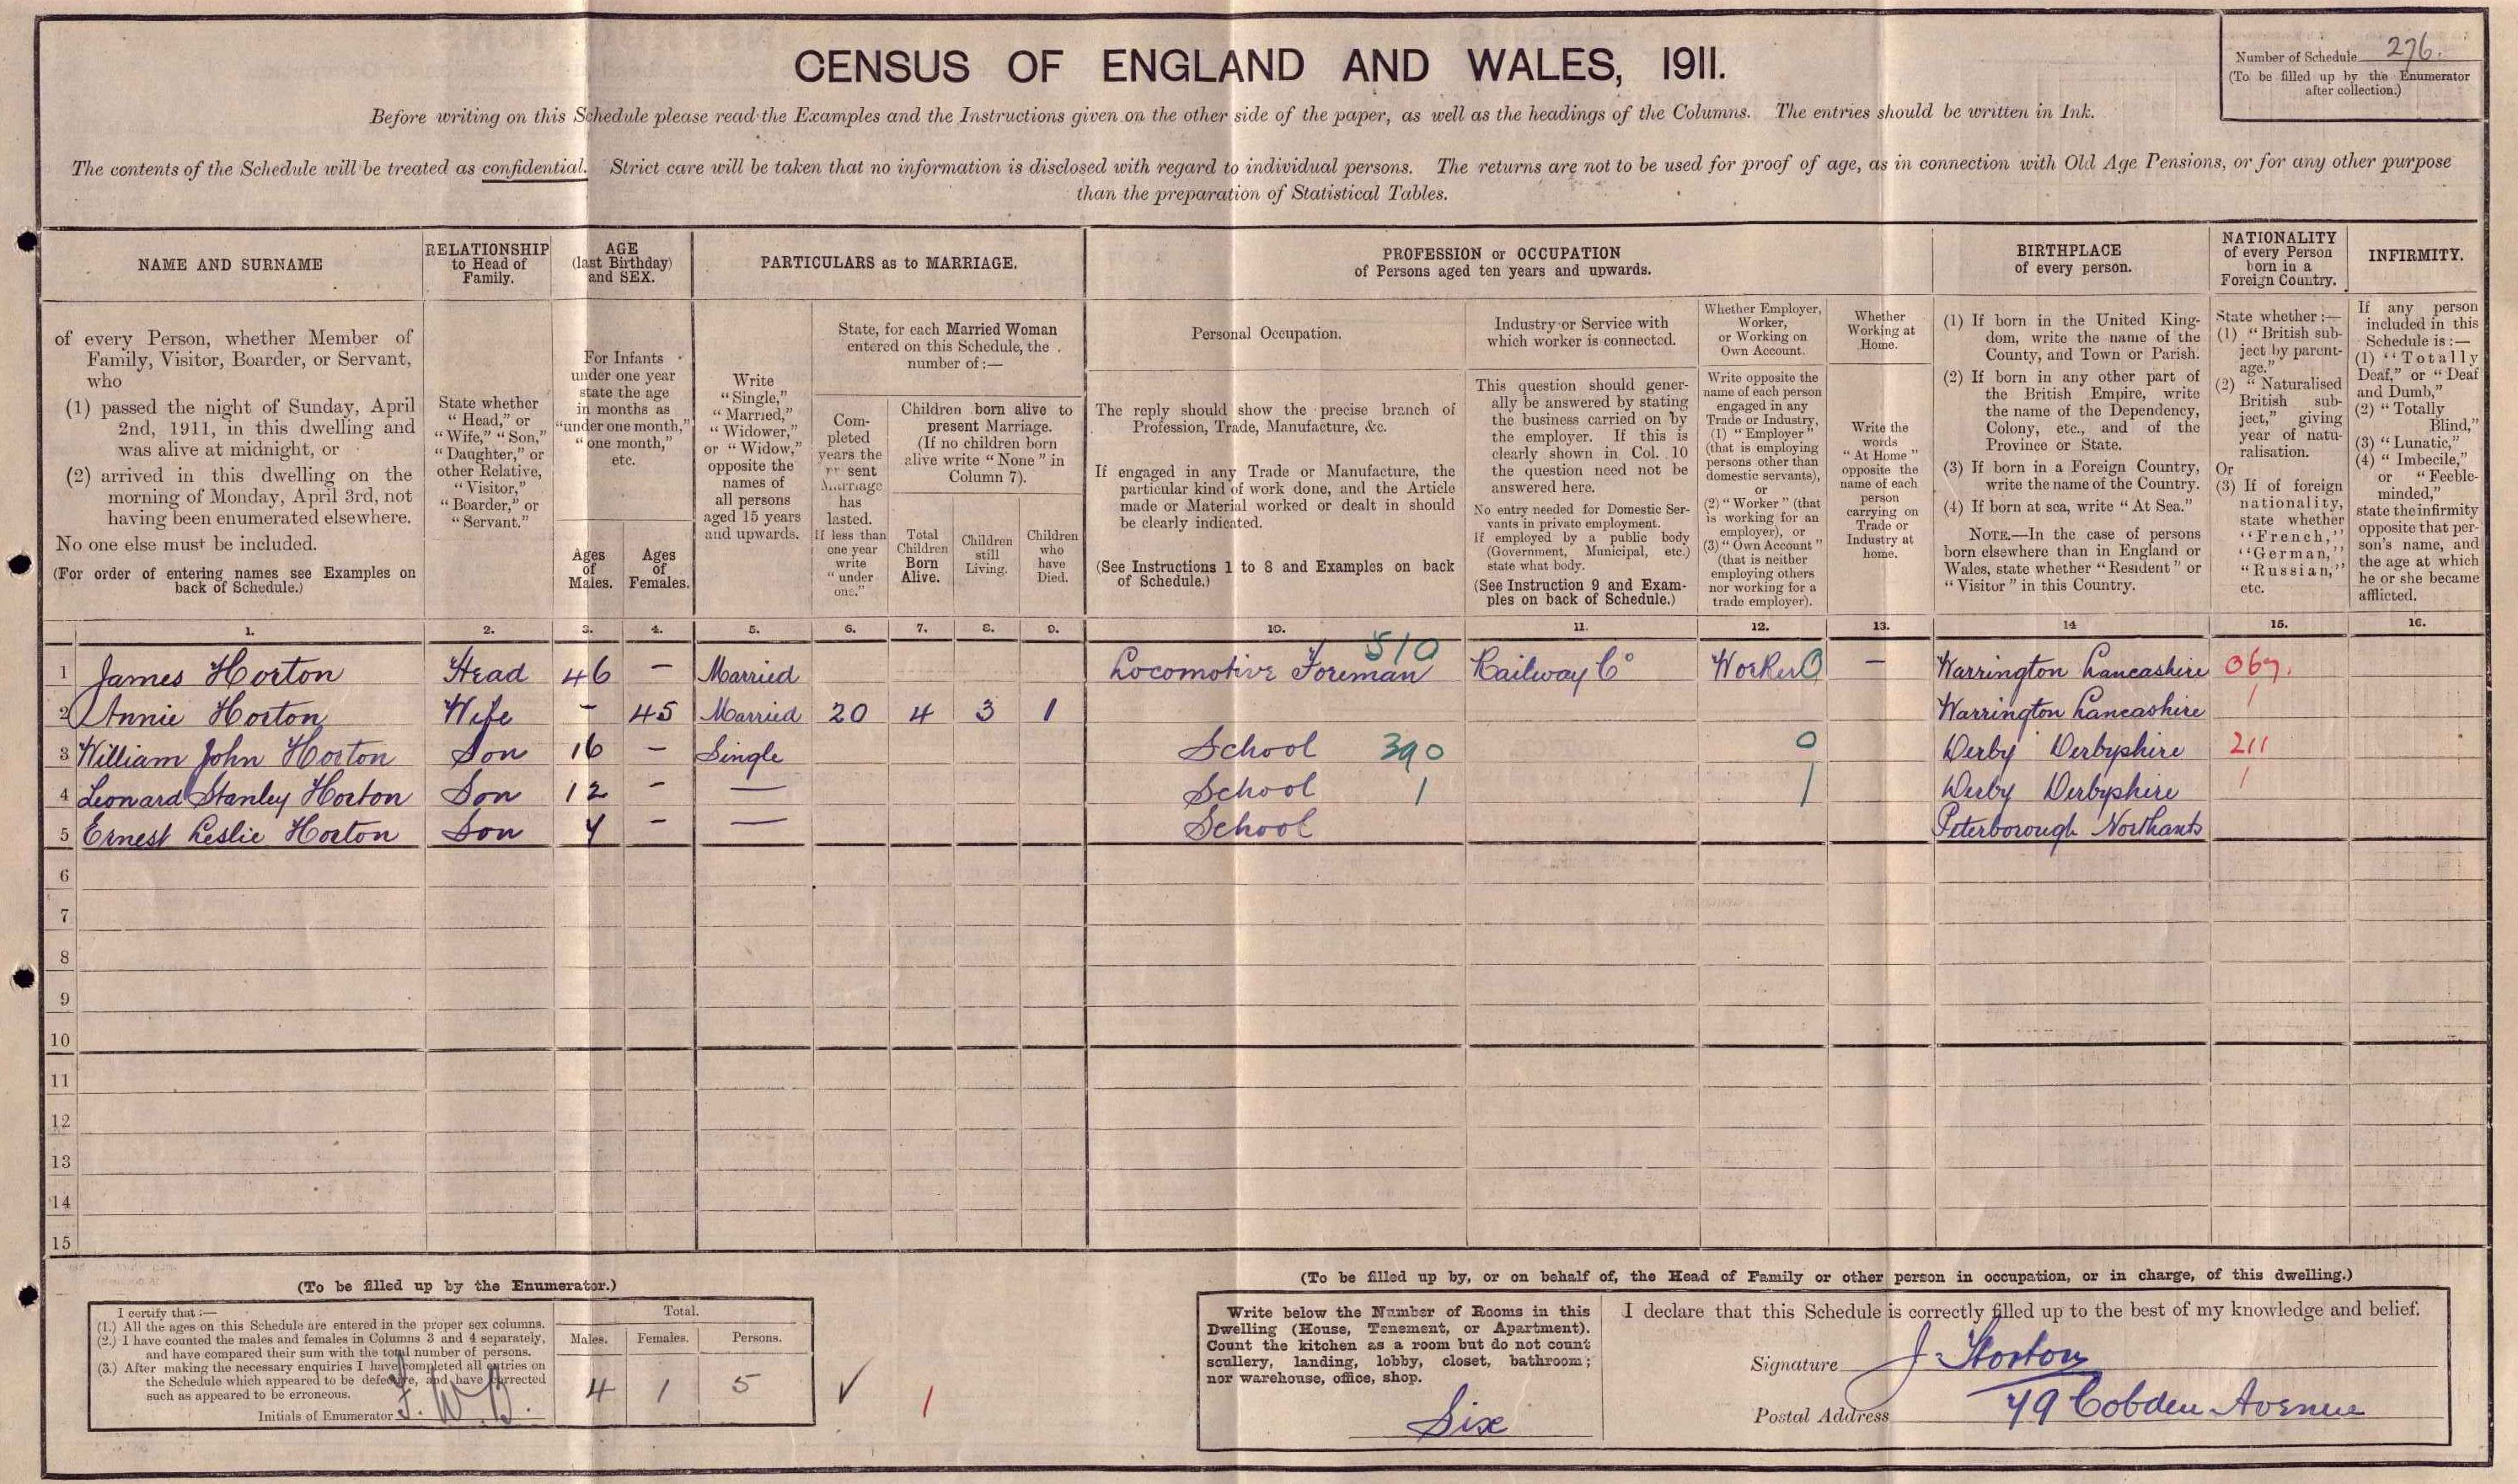 CENSUS OF ENGLAND AND WALES, 1911.
Number of Schedule 276.
(To be filled up by the Enumerator
after collection.)
Before writing on this Schedule please read the Examples and the Instructions given on the other side of the paper, as well as the headings of the Columns. The entries should be written in Ink.
The contents of the Schedule will be treated as confidential. Strict care will be taken that no information is disclosed with regard to individual persons. The returns are not to be used for proof of age, as in connection with Old Age Pensions, or for any other purpose
than the preparation of Statistical Tables.
NAME AND SURNAME
RELATIONSHIP
to Head of
Family.
AGE
(last Birthday)
and SEX.
PARTICULARS as to MARRIAGE.
PROFESSION or OCCUPATION
of Persons aged ten years and upwards.
BIRTHPLACE
of every person.
NATIONALITY
of every Person
born in a
Foreign Country.
INFIRMITY.
of every Person, whether Member of
Family, Visitor, Boarder, or Servant,
who
(1) passed the night of Sunday, April
2nd, 1911, in this dwelling and
was alive at midnight, or
(2) arrived in this dwelling on the
morning of Monday, April 3rd, not
having been enumerated elsewhere.
No one else must be included.
(For order of entering names see Examples on
back of Schedule.)
State whether
"Head," or
"Wife," "Son,"
"Daughter," or
other Relative,
"Visitor,"
"Boarder," or
"Servant."
For Infants
under one year
state the age
in months as
"under one month,"
"one month,"
etc.
Ages
of
Males.
Ages
of
Females.
Write
"Single,"
"Married,"
"Widower,"
or "Widow,"
opposite the
names of
all persons
aged 15 years
and upwards.
State, for each Married Woman
entered on this Schedule, the
number of:—
Com-
pleted
years the
present
Marriage
has
lasted.
If less than
one year
write
"under
one."
Children born alive to
present Marriage.
(If no children born
alive write "None" in
Column 7).
Total
Children
Born
Alive.
Children
still
Living.
Children
who
have
Died.
Personal Occupation.
The reply should show the precise branch of
Profession, Trade, Manufacture, &c.
If engaged in any Trade or Manufacture, the
particular kind of work done, and the Article
made or Material worked or dealt in should
be clearly indicated.
(See Instructions 1 to 8 and Examples on back
of Schedule.)
Industry or Service with
which worker is connected.
This question should gener-
ally be answered by stating
the business carried on by
the employer. If this is
clearly shown in Col. 10
the question need not be
answered here.
No entry needed for Domestic Ser-
vants in private employment.
If employed by a public body
(Government, Municipal, etc.)
state what body.
(See Instruction 9 and Exam-
ples on back of Schedule.)
Whether Employer,
Worker,
or Working on
Own Account.
Write opposite the
name of each person
engaged in any
Trade or Industry,
(1) "Employer"
(that is employing
persons other than
domestic servants),
or
(2) "Worker" (that
is working for an
employer), or
(3) "Own Account"
(that is neither
employing others
nor working for a
trade employer).
Whether
Working at
Home.
Write the
words
"At Home"
opposite the
name of each
person
carrying on
Trade or
Industry at
home.
(1) If born in the United King-
dom, write the name of the
County, and Town or Parish.
(2) If born in any other part of
the British Empire, write
the name of the Dependency,
Colony, etc., and of the
Province or State.
(3) If born in a Foreign Country,
write the name of the Country.
(4) If born at sea, write "At Sea."
NOTE.—In the case of persons
born elsewhere than in England or
Wales, state whether "Resident" or
"Visitor" in this Country.
State whether:—
(1) "British sub-
ject by parent-
age."
(2) "Naturalised
British sub-
ject," giving
year of natu-
ralisation.
Or
(3) If of foreign
nationality,
state whether
"French,"
"German,"
"Russian,"
etc.
If any person
included in this
Schedule is:—
(1) "Totally
Deaf," or "Deaf
and Dumb,"
(2) "Totally
Blind,"
(3) "Lunatic,"
(4) "Imbecile,"
or "Feeble-
minded,"
state the infirmity
opposite that per-
son's name, and
the age at which
he or she became
afflicted.
1. 2. 3. 4. 5. 6. 7. 8. 9. 10. 11. 12. 13. 14 15. 16.
510
1 James Horton Head 46 — Married Locomotive Foreman Railway Co Worker 0 — Warrington Lancashire 067.
2 Annie Horton Wife — 45 Married 20 4 3 1 Warrington Lancashire 1
3 William John Horton Son 16 — Single School 390 0 Derby Derbyshire 211
4 Leonard Stanley Horton Son 12 — — School 1 1 Derby Derbyshire 1
5 Ernest Leslie Horton Son 7 — — School Peterborough Northants
6
7
8
9
10
11
12
13
14
15
(To be filled up by the Enumerator.)
I certify that:—
(1.) All the ages on this Schedule are entered in the proper sex columns.
(2.) I have counted the males and females in Columns 3 and 4 separately,
and have compared their sum with the total number of persons.
(3.) After making the necessary enquiries I have completed all entries on
the Schedule which appeared to be defective, and have corrected
such as appeared to be erroneous.
Initials of Enumerator F. W. B.
Total.
Males. Females. Persons.
4 1 5
✓ 1
(To be filled up by, or on behalf of, the Head of Family or other person in occupation, or in charge, of this dwelling.)
Write below the Number of Rooms in this
Dwelling (House, Tenement, or Apartment).
Count the kitchen as a room but do not count
scullery, landing, lobby, closet, bathroom;
nor warehouse, office, shop.
Six
I declare that this Schedule is correctly filled up to the best of my knowledge and belief.
Signature J. Horton
Postal Address 79 Cobden Avenue